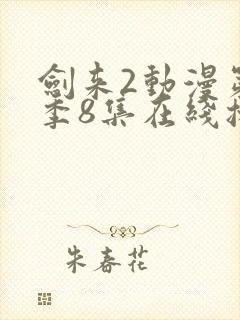 劍来2動漫
季8集在綫
朱春花